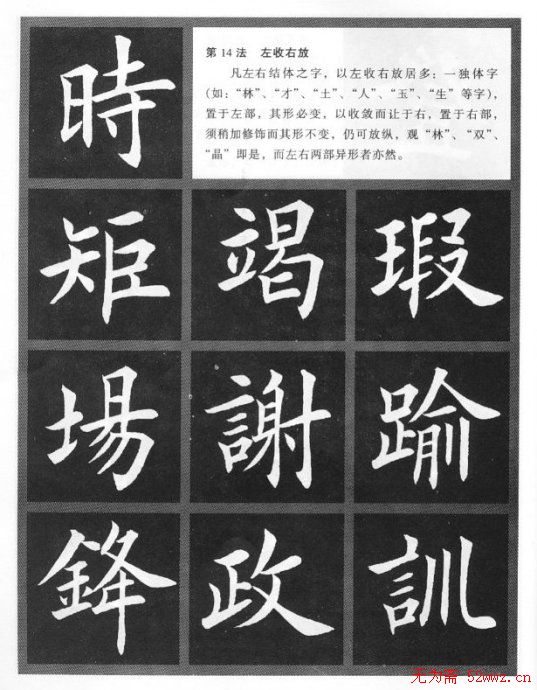 時
第14法 左收右放
凡左右结体之字，以左收右放居多；一独体字
（如：“林”、“才”、“土”、“人”、“玉”、“生”等字），
置于左部，其形必变，以收敛而让于右，置于右部，
须稍加修饰而其形不变，仍可放纵，观“林”、“双”、
“晶”即是，而左右两部异形者亦然。
矩 竭 瑕
場 謝 踰
鋒 政 訓
无为斋 52wwz.cn